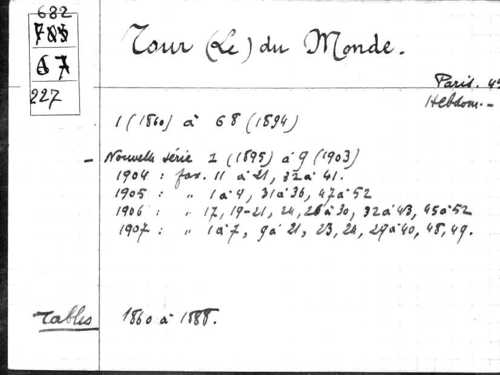 682
67
227
Tour (Le) du Monde.
Paris. 4º
Hebdom.-
1 (1860) à 68 (1894)
- Nouvelle série 1 (1895) à 9 (1903)
1904 : fas. 11 à 21, 32 à 41.
1905 : " 1 à 4, 31 à 36, 47 à 52
1906 : " 17, 19-21, 24, 26 à 30, 32 à 43, 45 à 52
1907 : " 1 à 7, 9 à 21, 23, 24, 29 à 40, 48, 49.
Tables 1860 à 1888.